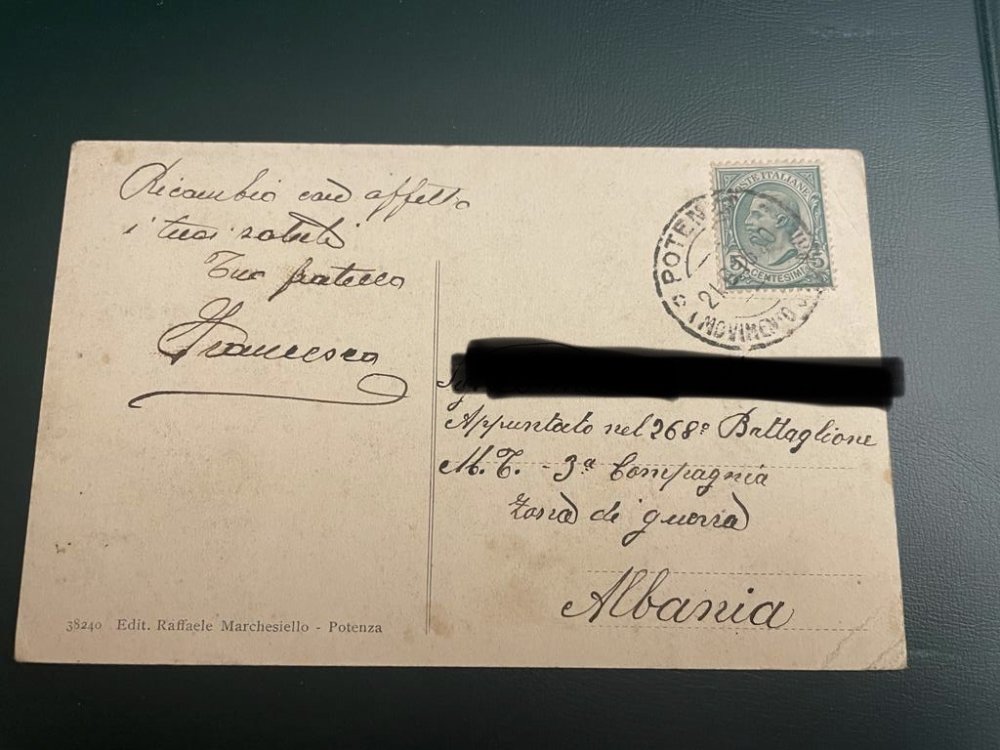 Ricambio con affetto
i tuoi saluti
Tuo fratello
Francesco
POSTE ITALIANE
5 CENTESIMI 5
POTENZA
MOVIMENTO
Appuntato nel 268º Battaglione
M. T. - 3ª Compagnia
Zona di guerra
Albania
38240 Edit. Raffaele Marchesiello - Potenza